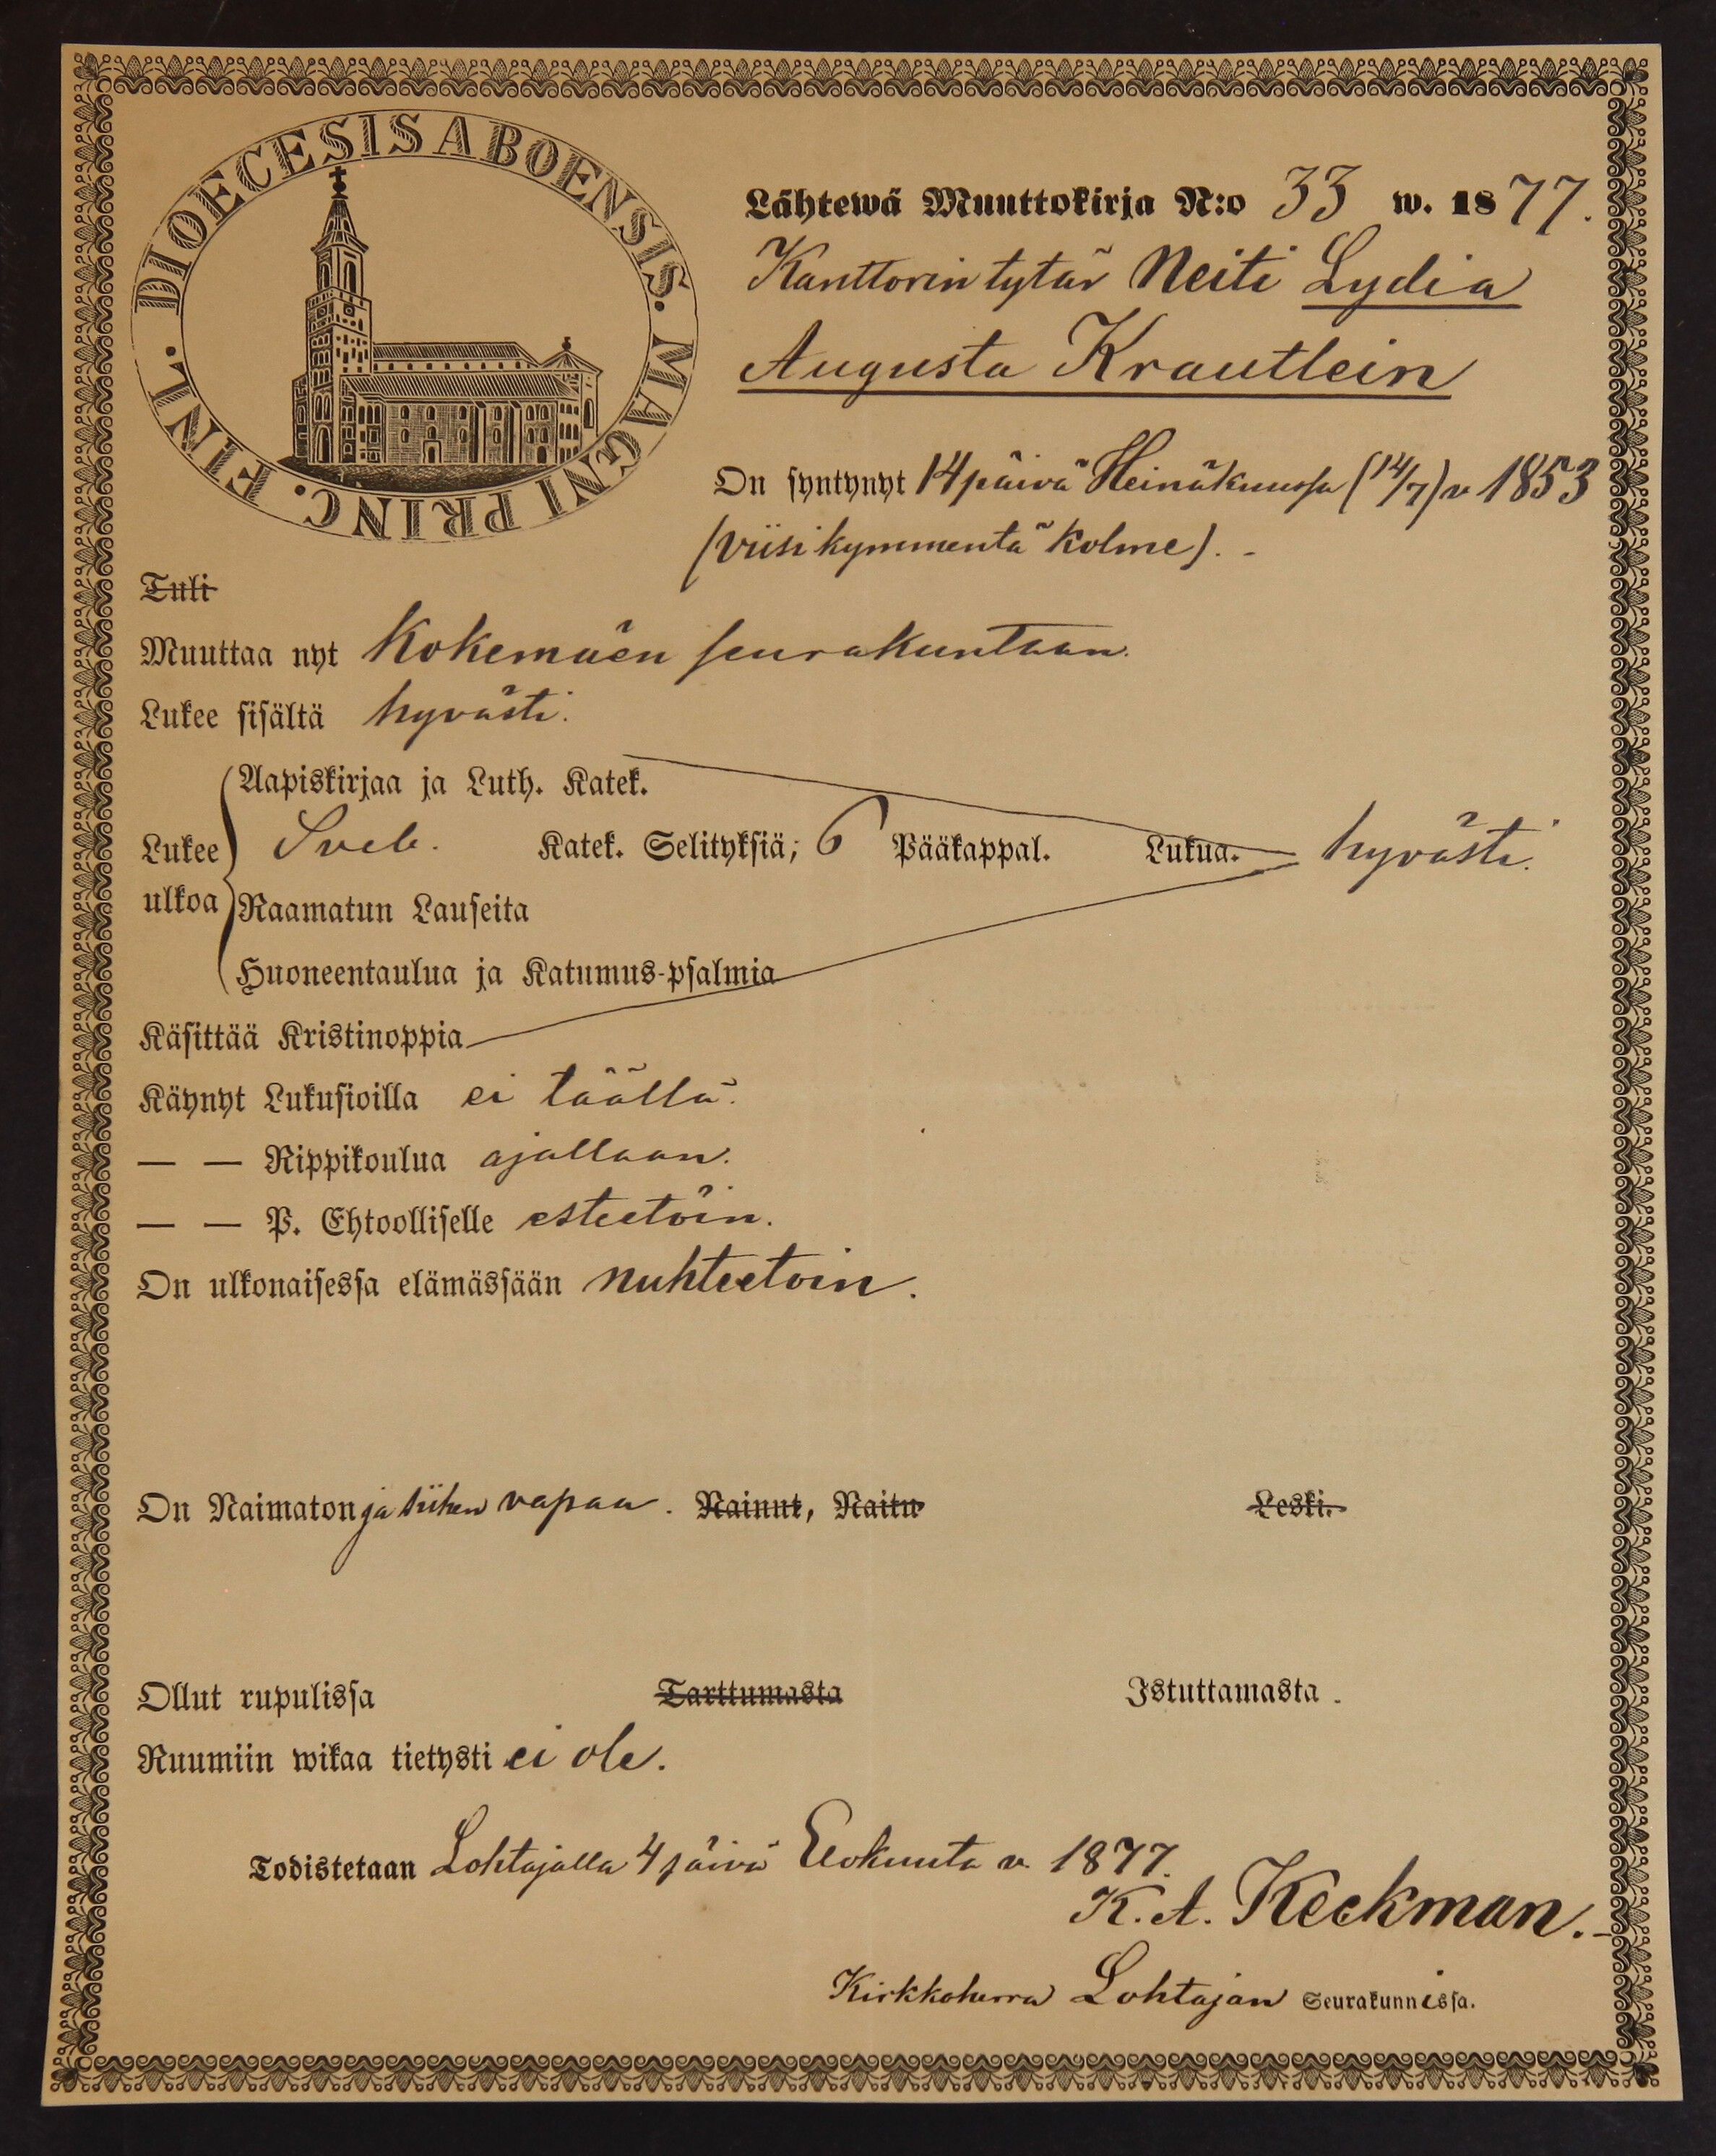 DIOECESIS ABOENSIS. MAGNI PRINC. FINL.
Lähtewä Muuttokirja N:o 33 w. 1877.
Kanttorin tytär Neiti Lydia
Augusta Krautlein
On syntynyt 14 päivä Heinäkuussa (14/7) v 1853
(viisikymmentä kolme). -
Tuli
Muuttaa nyt Kokemäen seurakuntaan.
Lukee sisältä hyvästi.
Aapiskirjaa ja Luth. Katek.
Lukee Sveb. Katek. Selityksiä; 6 Pääkappal. Lukua. hyvästi.
ulkoa Raamatun Lauseita
Huoneentaulua ja Katumus-psalmia
Käsittää Kristinoppia
Käynyt Lukusioilla ei täällä.
— — Rippikoulua ajallaan.
— — P. Ehtoolliselle esteetöin.
On ulkonaisessa elämässään nuhteetoin.
On Naimaton ja siihen vapaa. Nainut, Naitu Leski.
Ollut rupulissa Tarttumasta Istuttamasta.
Ruumiin wikaa tietysti ei ole.
Todistetaan Lohtajalla 4 päivä Elokuuta v. 1877.
K. A. Keckman.
Kirkkoherra Lohtajan Seurakunnissa.